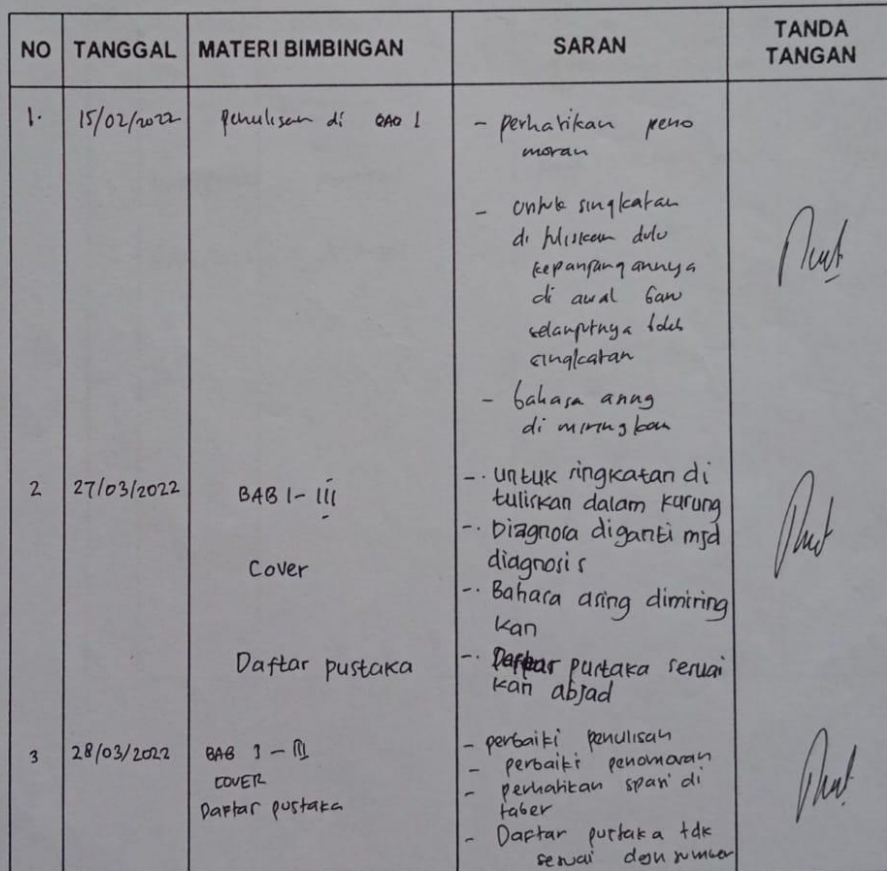 NO TANGGAL MATERI BIMBINGAN SARAN TANDA TANGAN
1. 15/02/2022 penulisan di BAB I - perhatikan peno
moran
- untuk singkatan
di tuliskan dulu
kepanjangannya
di awal baru
selanjutnya boleh
singkatan
- bahasa asing
di miringkan
2 27/03/2022 BAB I - III -. untuk singkatan di
tuliskan dalam kurung
-. Diagnosa diganti mjd
diagnosis
Cover
-. Bahasa asing dimiring
kan
Daftar pustaka -. Daftar pustaka sesuai
kan abjad
3 28/03/2022 BAB I - III - perbaiki penulisan
COVER - perbaiki penomoran
Daftar pustaka - perhatikan spasi di
tabel
- Daftar pustaka tdk
sesuai dgn sumber